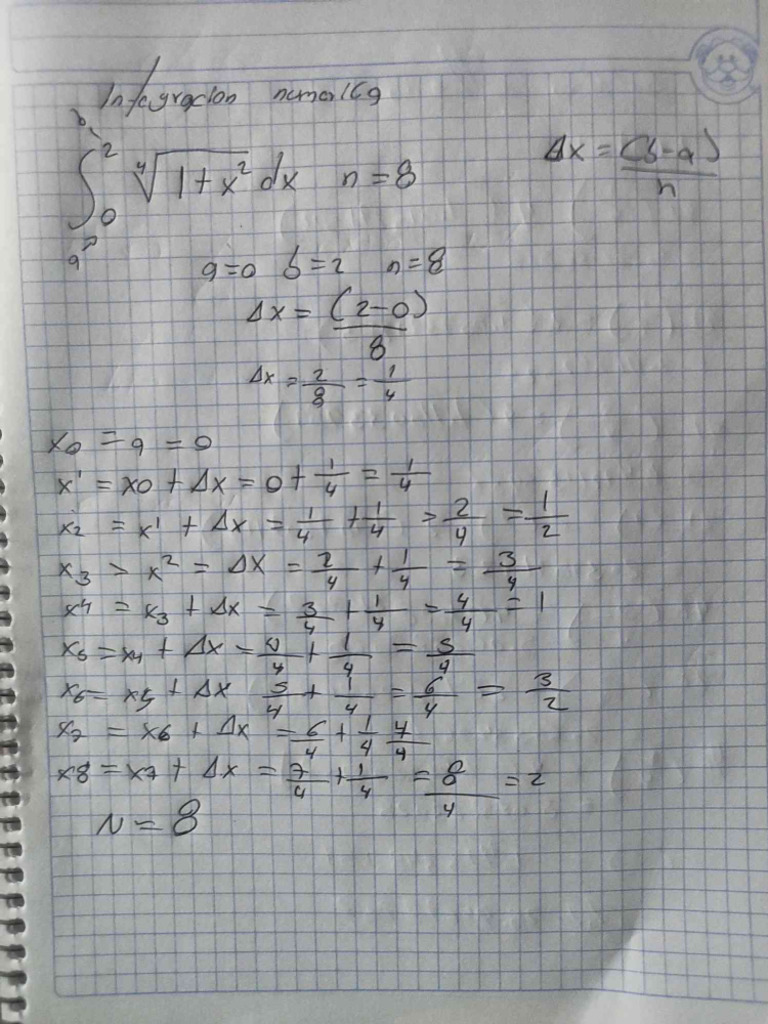 Integración numérica
∫₀² ∜(1+x²) dx n=8
b→
a→
Δx = (b-a)/n
a=0 b=2 n=8
Δx = (2-0)/8
Δx = 2/8 = 1/4
x0 = a = 0
x1 = x0 + Δx = 0 + 1/4 = 1/4
x2 = x1 + Δx = 1/4 + 1/4 = 2/4 = 1/2
x3 = x2 = Δx = 2/4 + 1/4 = 3/4
x4 = x3 + Δx = 3/4 + 1/4 = 4/4 = 1
x5 = x4 + Δx = 4/4 + 1/4 = 5/4
x6 = x5 + Δx 5/4 + 1/4 = 6/4 = 3/2
x7 = x6 + Δx = 6/4 + 1/4 7/4
x8 = x7 + Δx = 7/4 + 1/4 = 8/4 = 2
N = 8